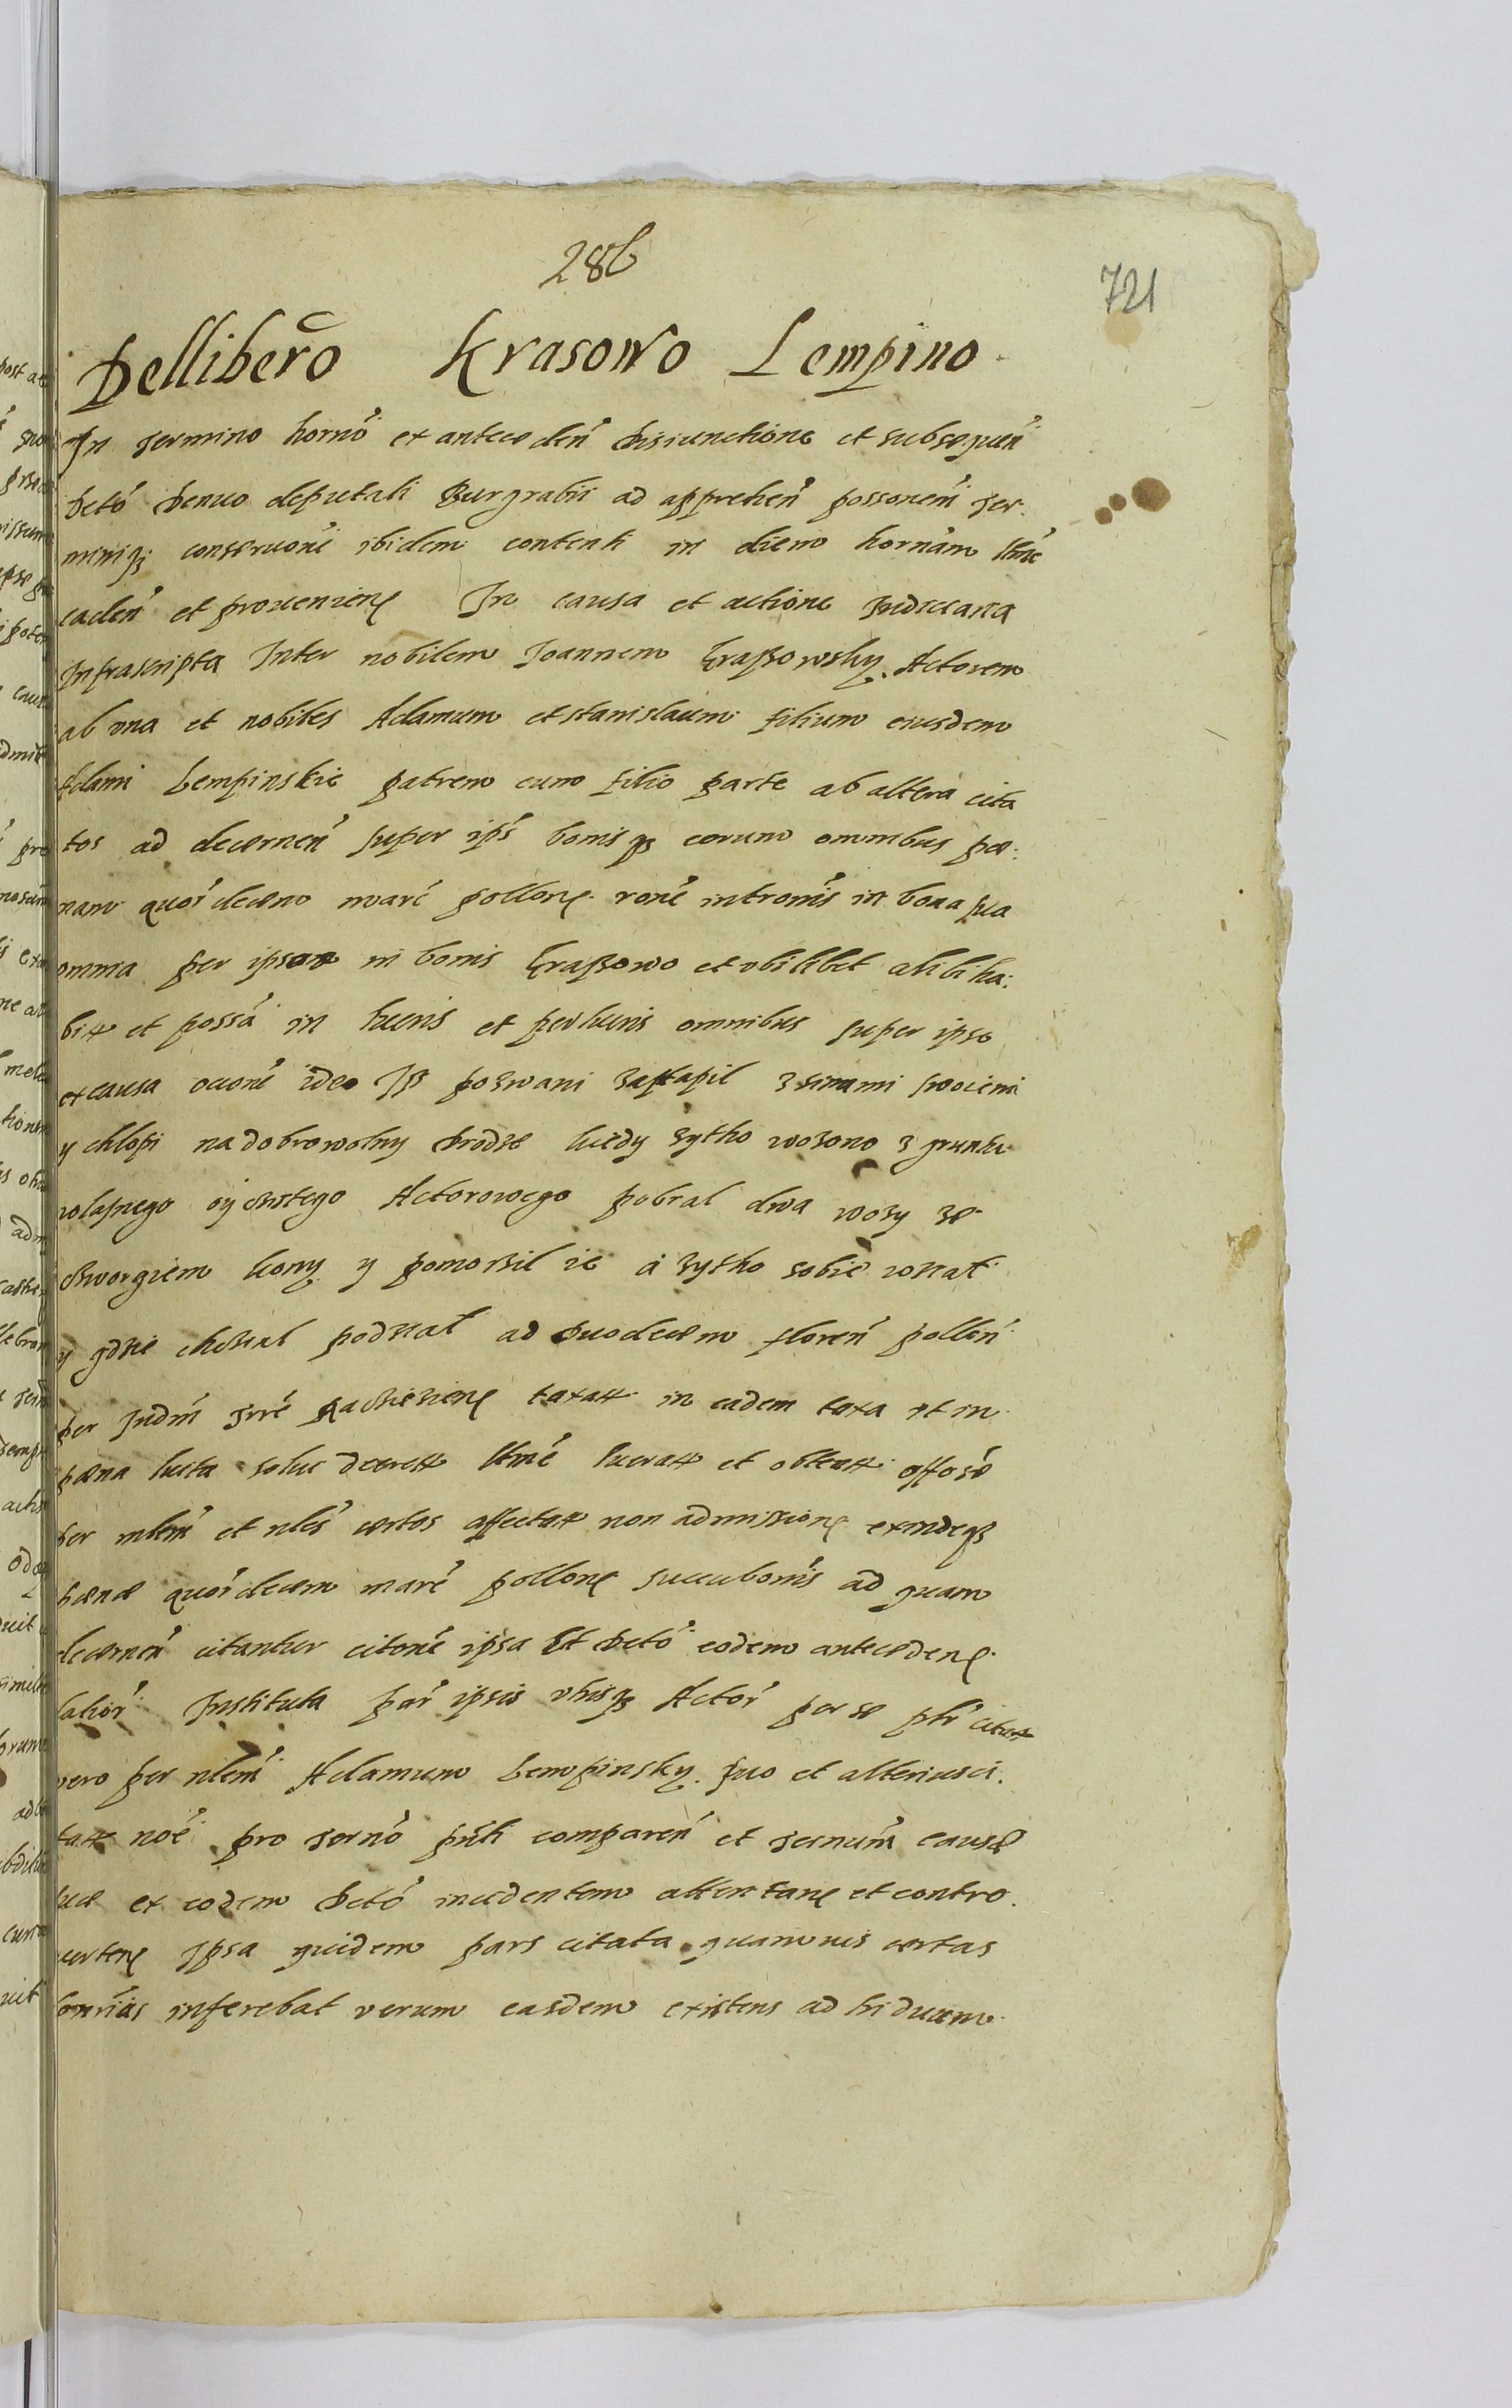 28b
721
Dellibero Krasowo Lempino
In termino horno et anteceden disiunctione et subsequen
Deto Denuo deputati Burgrabii ad apprehen possonem ter
miniqz conseruone ibidem contenti in diem hornam
caden et prouenien In causa et actione Judiciaria
Infrascripta Inter nobilem Joannem Kraszowsky Actorem
ab vna et nobiles Adamum et Stanislaum filium eiusdem
Adami Lempinskie patrem cum filio parte ab altera cita
tos ad decernen super ips bonisqz eorum omnibus pœ
nam quor decem marc pollon rone intromis in bona sua
omnia per ipsam in bonis Kraszowo et vbilibet alibi ha
bit et possa in lucris et perlucris omnibus super ipso
ex causa ideo Jz pozwani zastapil z sinami swoiemi
y chlopi na dobrowolny drodze kiedy zytho wozono z gruntu
wlasnego oyczistego Actorowego pobral dwa wozy ze
cztworgiem kony y pomorzil ie a zytho sobie wział
y gdzie chcział podział ad duodecem floren pollon
per Judm trre taxat in eadem taxa et in
pœna lucta decret lucrat et obtent
per nlem et nles certos affectat non admission exindeqz
pœnæ quor decem marc pollon succubonis ad quam
decernen citantur citone ipsa et deto eodem anteceden
latior Instituta par ipsis vtrisqz Actor per se citat
vero per nlem Adamum Lempinsky suo et alterius ci
tat noe pro terno pnti comparen et ternum causæ
suæ ex eodem deto incidentem attentan et contro
uerten Ipsa quidem pars citata quamuis certas
inferebat verum easdem existens ad triduam